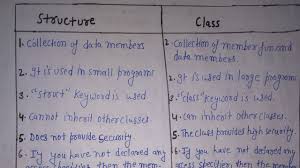 Structure
Class
1. Collection of data members
2. Collection of member fun and
data members.
2. It is used in small programs
2. It is used in large programs
3. "struct" keyword is used
3. "class" keyword is used.
4. Cannot inherit other classes
4. Can inherit other classes.
5. Does not provide security.
5. The class provides high security
6. If you have not declared any
6. If you have not declared any
access specifiers then the mem-
access specifier, then the mem-